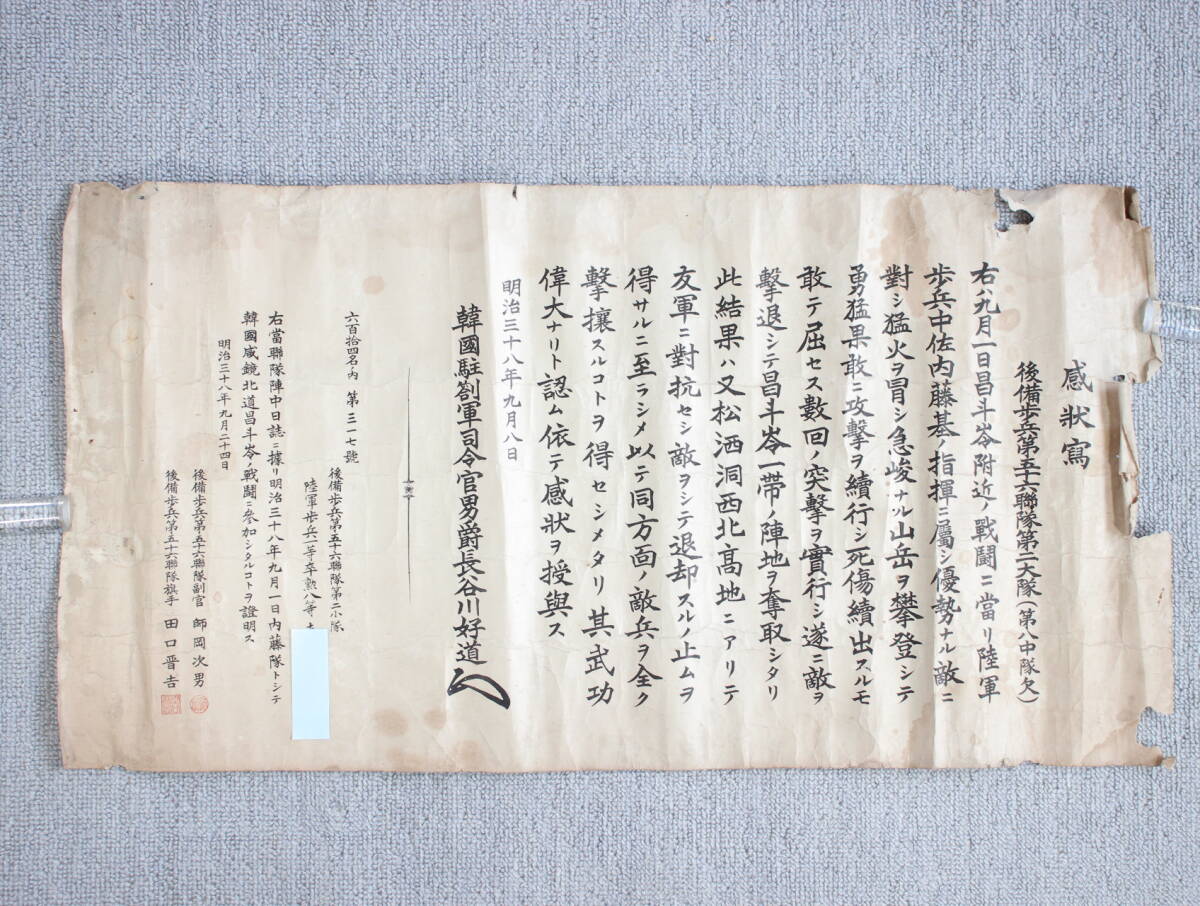 感狀寫
後備歩兵第五十六聯隊第二大隊(第八中隊欠)
右ハ九月一日昌斗岺附近ノ戰鬪ニ當リ陸軍
歩兵中佐内藤基ノ指揮ニ屬シ優勢ナル敵ニ
對シ猛火ヲ冒シ急峻ナル山岳ヲ攀登シテ
勇猛果敢ニ攻擊ヲ續行シ死傷續出スルモ
敢テ屈セス數回ノ突擊ヲ實行シ遂ニ敵ヲ
擊退シテ昌斗岺一帶ノ陣地ヲ奪取シタリ
此結果ハ又松洒洞西北髙地ニアリテ
友軍ニ對抗セシ敵ヲシテ退却スルノ止ムヲ
得サルニ至ラシメ以テ同方面ノ敵兵ヲ全ク
擊攘スルコトヲ得セシメタリ其武功
偉大ナリト認ム依テ感狀ヲ授與ス
明治三十八年九月八日
韓國駐劄軍司令官男爵長谷川好道
六百拾四名ノ内 第三一七號
後備歩兵第五十六聯隊第二小隊
陸軍歩兵一等卒勲八等
右當聯隊陣中日誌ニ據リ明治三十八年九月一日内藤隊トシテ
韓國咸鏡北道昌斗岺ノ戰鬪ニ參加シタルコトヲ證明ス
明治三十八年九月二十四日
後備歩兵第五十六聯隊副官 師岡次男
後備歩兵第五十六聯隊旗手 田口晋吉